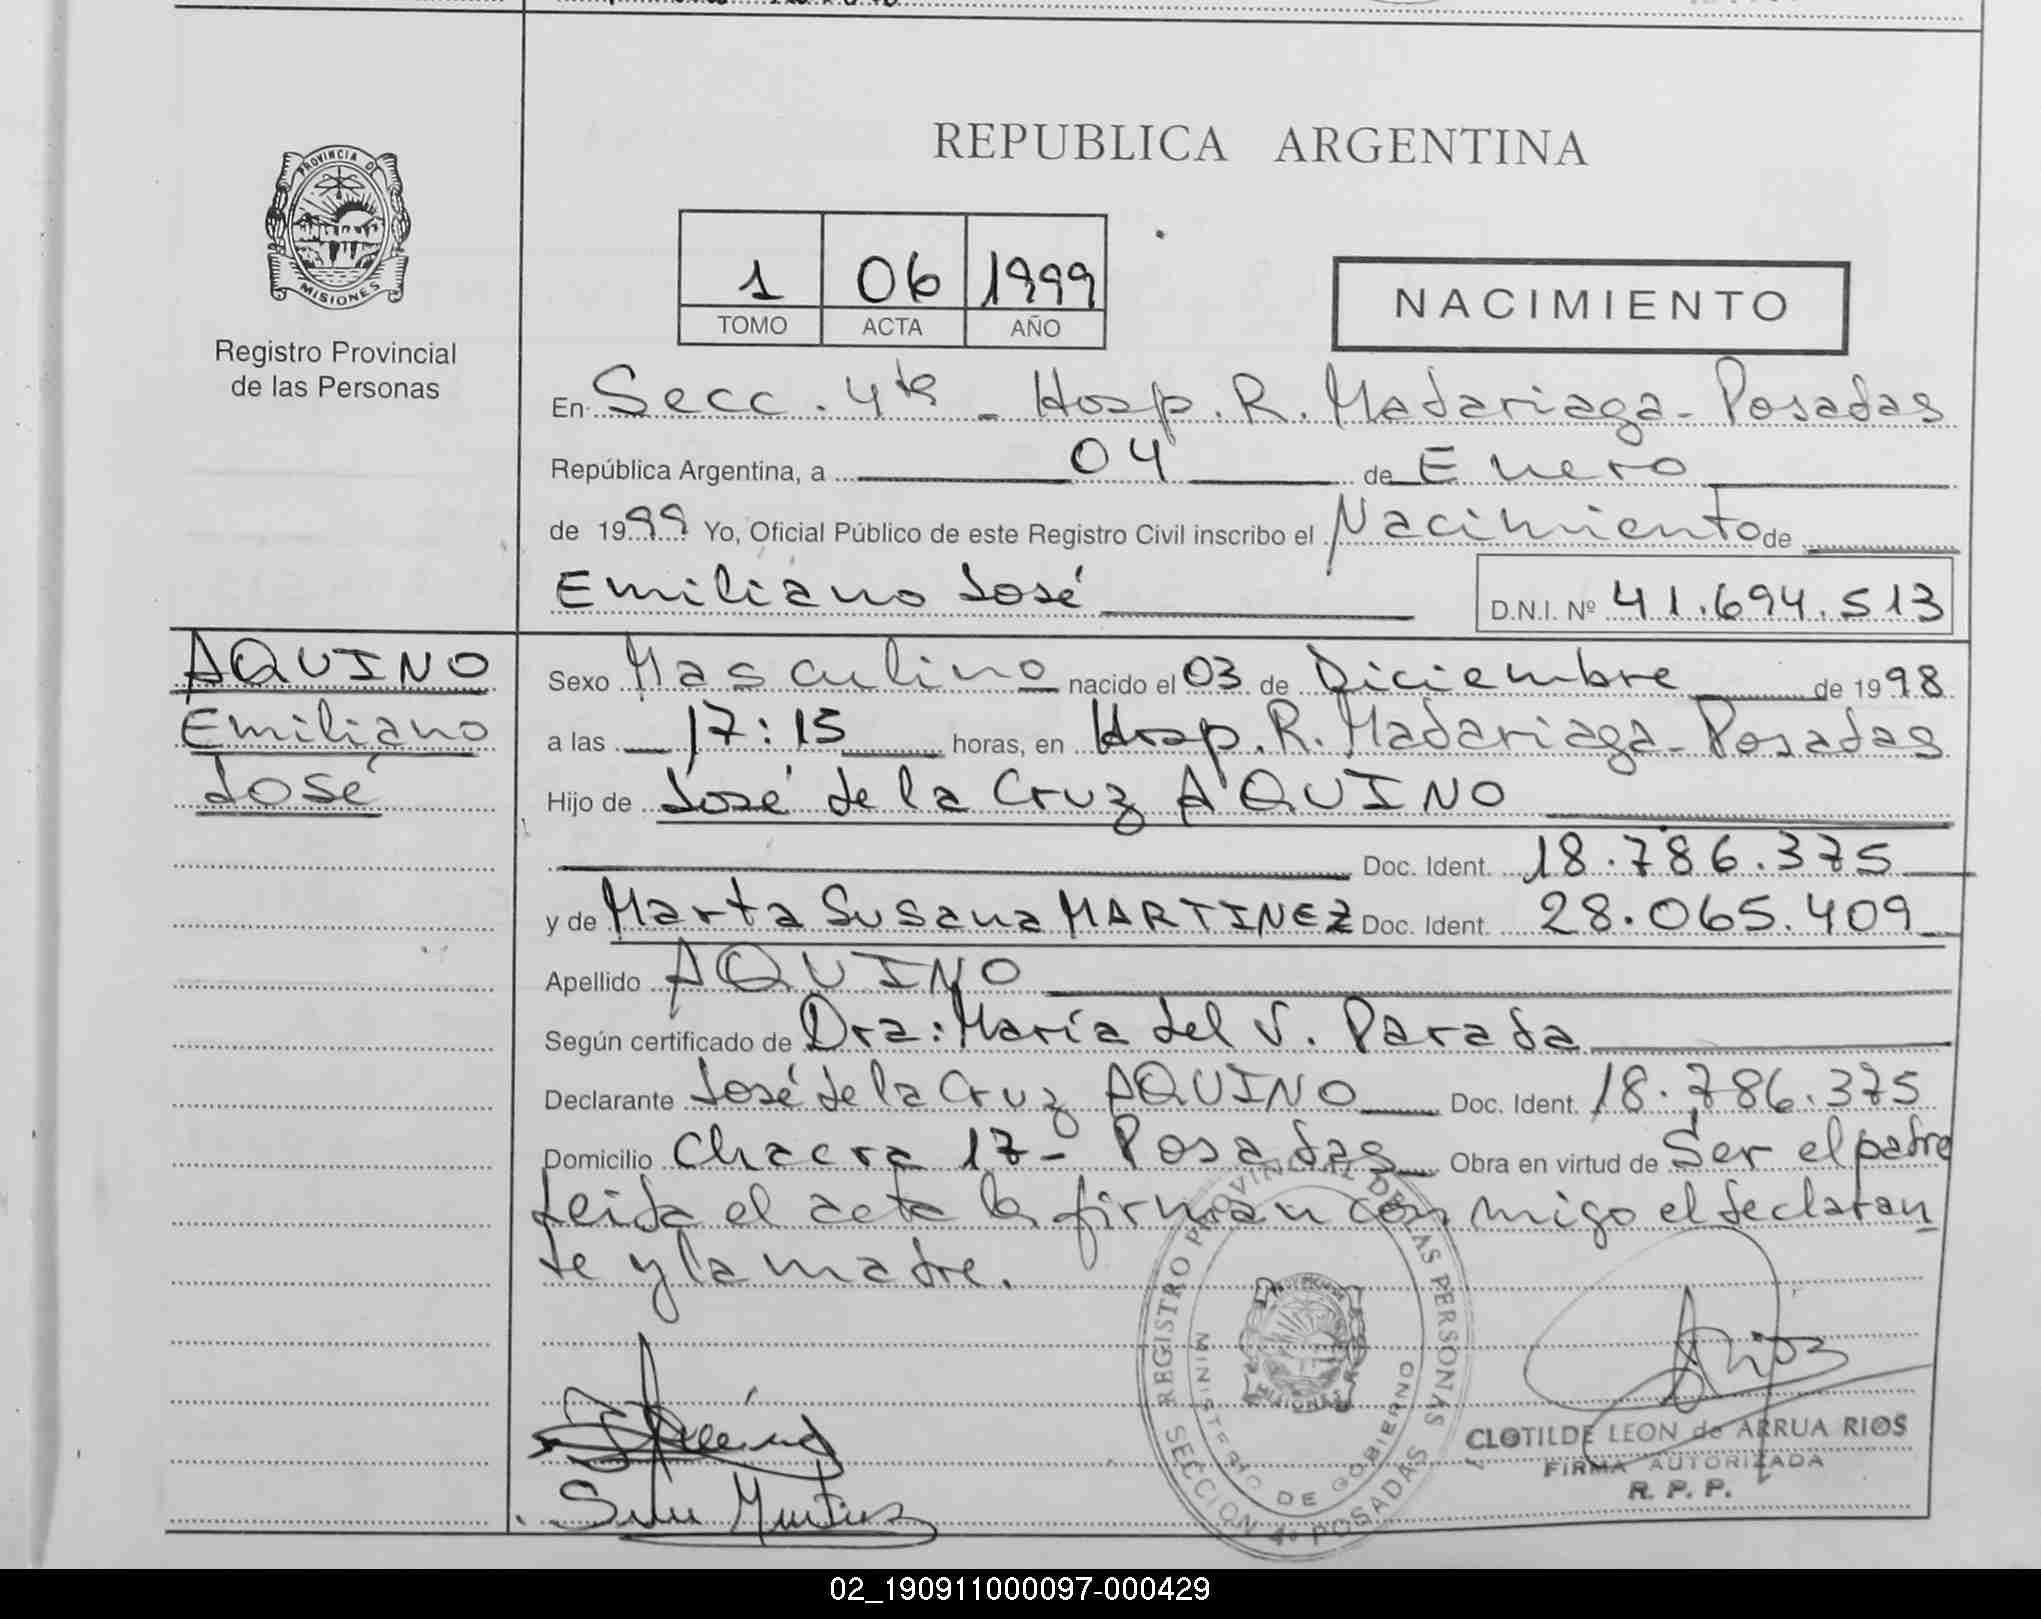 REPUBLICA ARGENTINA
PROVINCIA DE
MISIONES
Registro Provincial
de las Personas
1 06 1999
TOMO ACTA AÑO
NACIMIENTO
En Secc. 4ta - Hosp. R. Madariaga - Posadas
República Argentina, a 04 de Enero
de 1999 Yo, Oficial Público de este Registro Civil inscribo el Nacimiento de
Emiliano José D.N.I. Nº 41.694.513
AQUINO
Emiliano
José
Sexo Masculino nacido el 03 de Diciembre de 1998
a las 17:15 horas, en Hosp. R. Madariaga - Posadas
Hijo de José de la Cruz AQUINO
Doc. Ident. 18.786.375
y de Marta Susana MARTINEZ Doc. Ident. 28.065.409
Apellido AQUINO
Según certificado de Dra: María del V. Parada
Declarante José de la Cruz AQUINO Doc. Ident. 18.786.375
Domicilio Chacra 17 - Posadas Obra en virtud de Ser el padre
Leida el acta la firman con migo el declaran
te y la madre.
REGISTRO PROVINCIAL DE LAS PERSONAS
MINISTERIO DE GOBIERNO
MISIONES
SECCION 4ª POSADAS
CLOTILDE LEON de ARRUA RIOS
FIRMA AUTORIZADA
R. P. P.
02_190911000097-000429